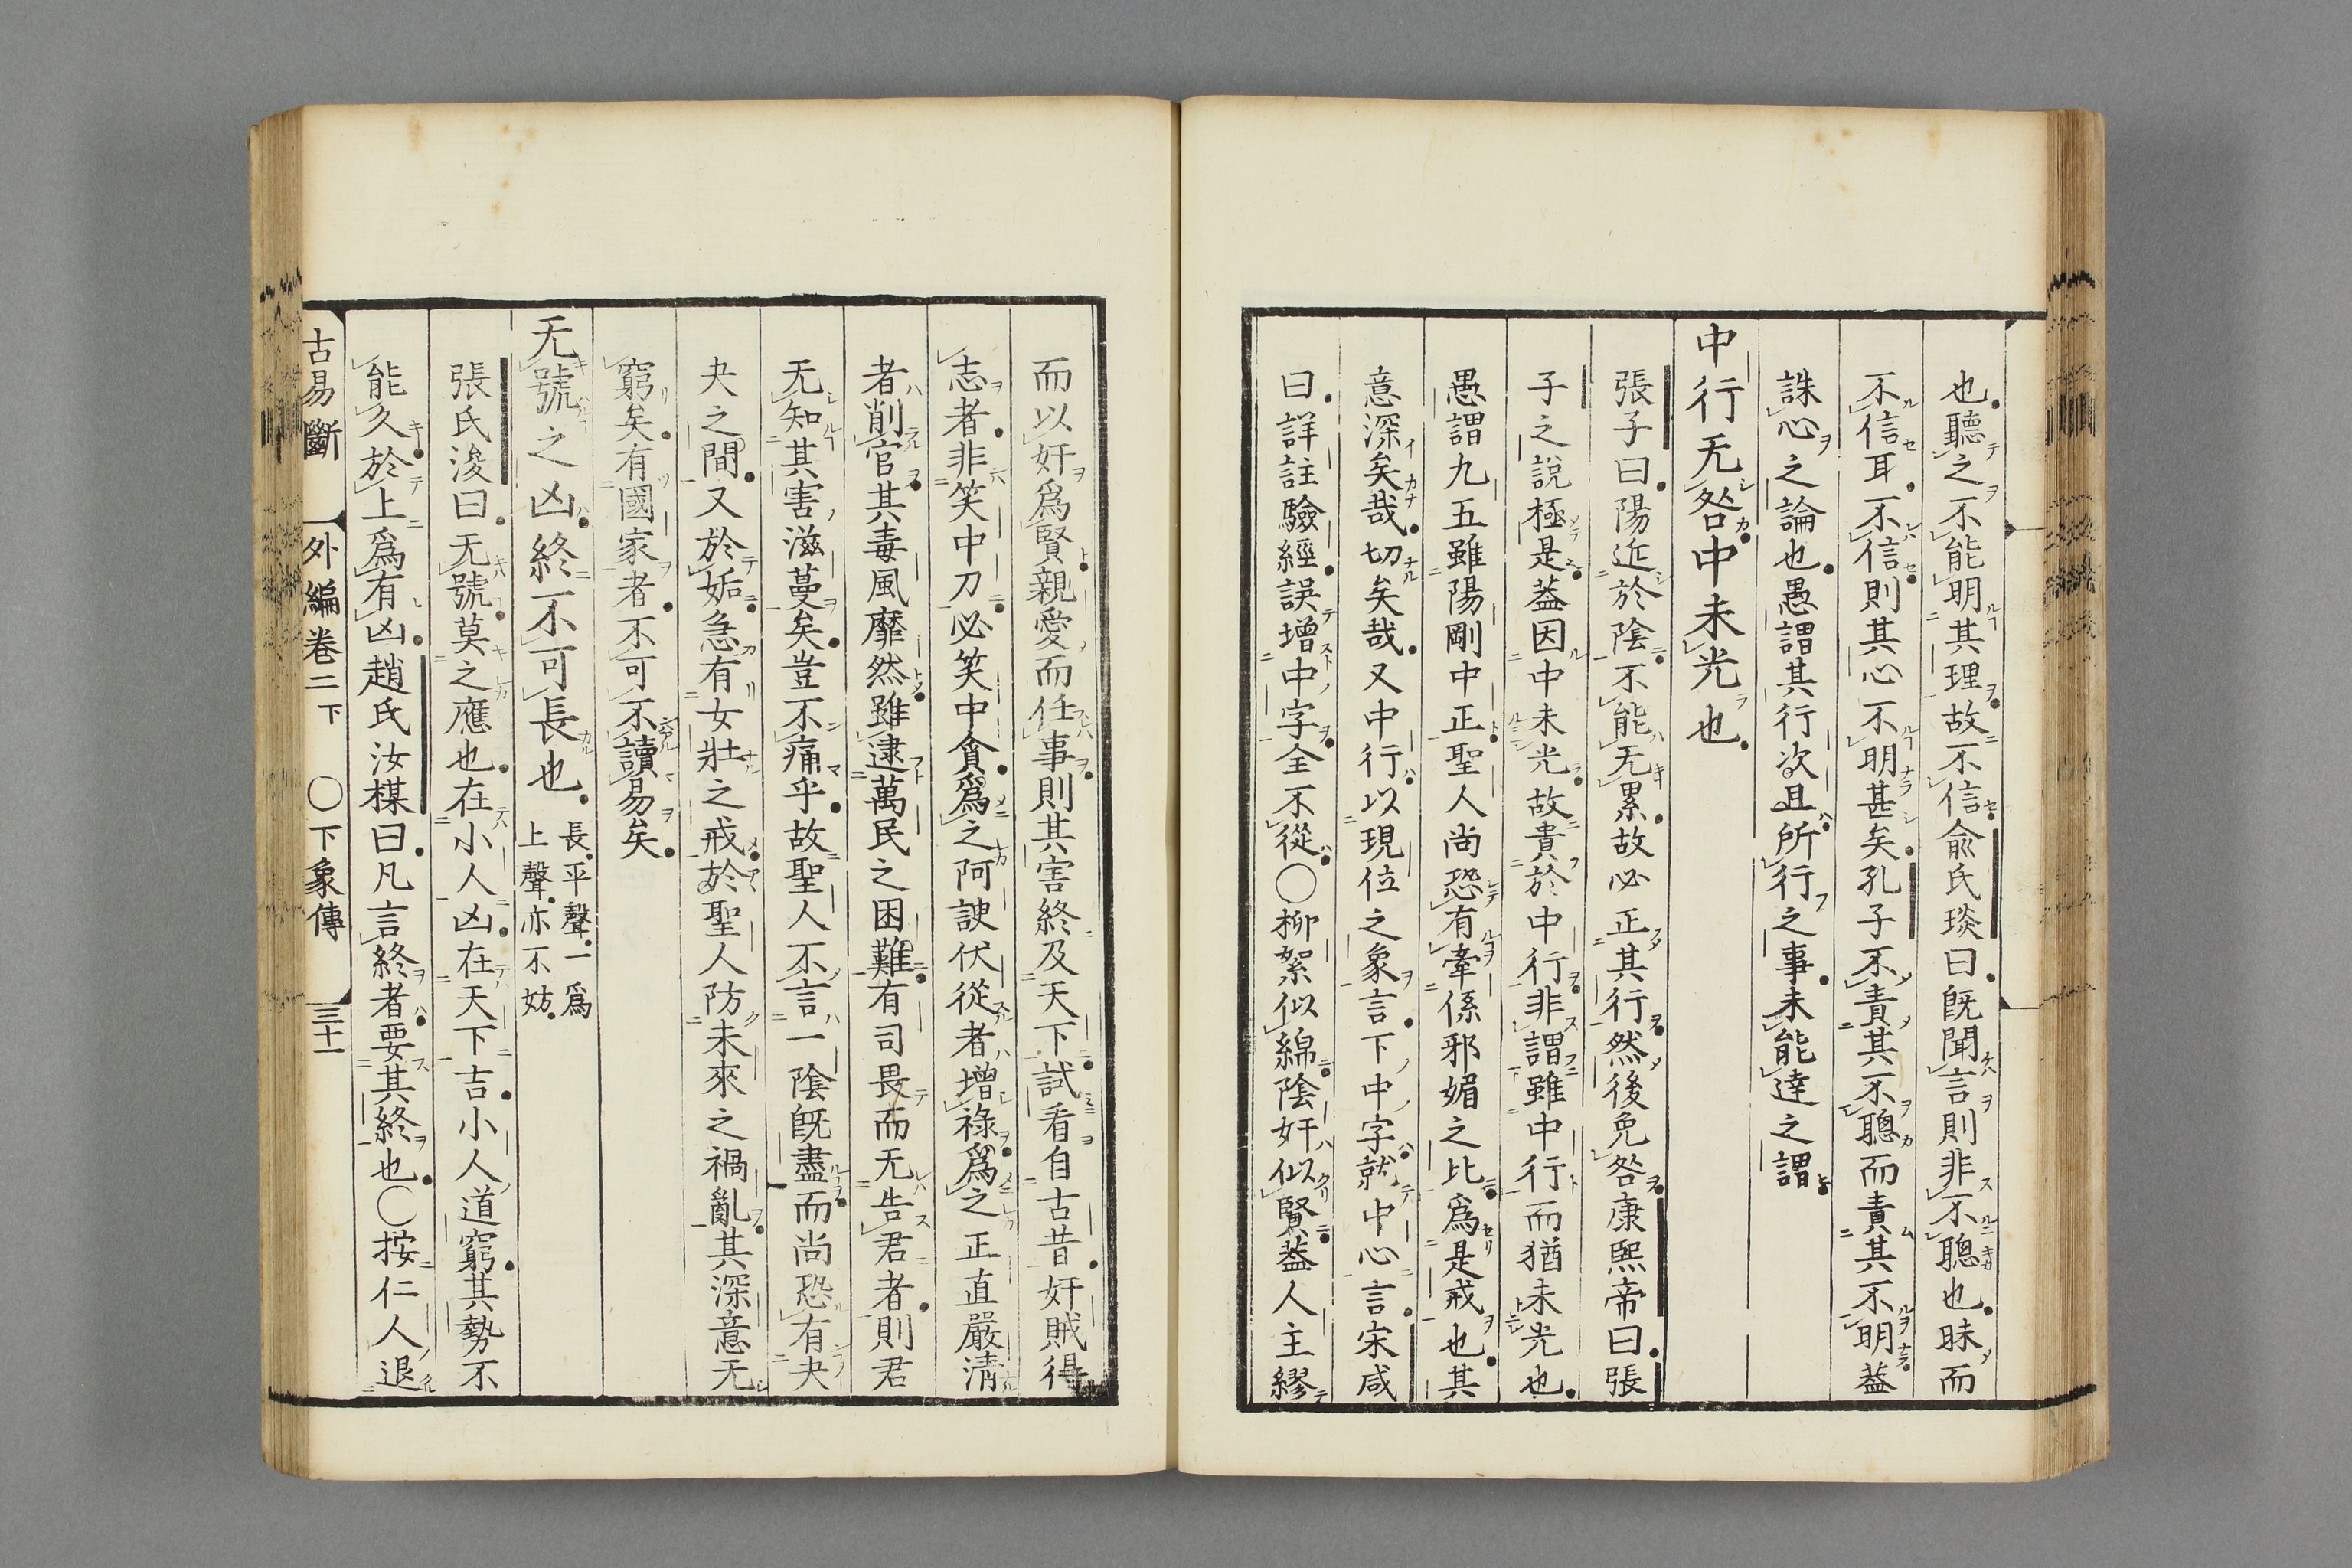 也聽之不能明其理故不信兪氏琰曰旣聞言則非不聰也昧而
不信耳不信則其心不明甚矣孔子不責其不聰而責其不明蓋
誅心之論也愚謂其行次且所行之事未能達之謂
中行无咎中未光也
張子曰陽近於陰不能无累故必正其行然後免咎康熙帝曰張
子之說極是蓋因中未光故貴於中行非謂雖中行而猶未光也
愚謂九五雖陽剛中正聖人尚恐有牽係邪媚之比爲是戒也其
意深矣哉切矣哉又中行以現位之象言下中字就中心言宋咸
曰詳註驗經誤增中字全不從〇柳絮似綿陰奸似賢蓋人主繆
而以奸爲賢親愛而任事則其害終及天下試看自古昔奸賊得
志者非笑中刀必笑中貪爲之阿諛伏從者增祿爲之正直嚴淸
者削官其毒風靡然雖逮萬民之困難有司畏而无告君者則君
无知其害滋蔓矣豈不痛乎故聖人不言一陰旣盡而尚恐有夬
夬之間又於姤急有女壯之戒於聖人防未來之禍亂其深意无
窮矣有國家者不可不讀易矣
无號之凶終不可長也 長平聲一爲上聲亦不妨
張氏浚曰无號莫之應也在小人凶在天下吉小人道窮其勢不
能久於上爲有凶趙氏汝楳曰凡言終者要其終也〇按仁人退
古易斷 外編卷二下 〇下象傳 三十一